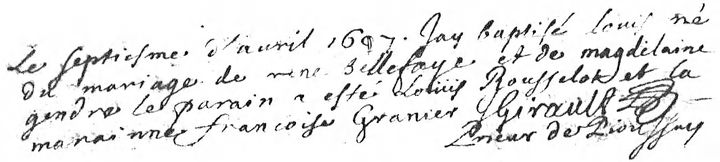 Le septiesme d'avril 1697. Jay baptisé louis né
du mariage de rene Bellefaye et de magdelaine
gendre le parain a esté Louis Rousselot et la
marainne francoise Granier Girault
Prieur de Pioussay